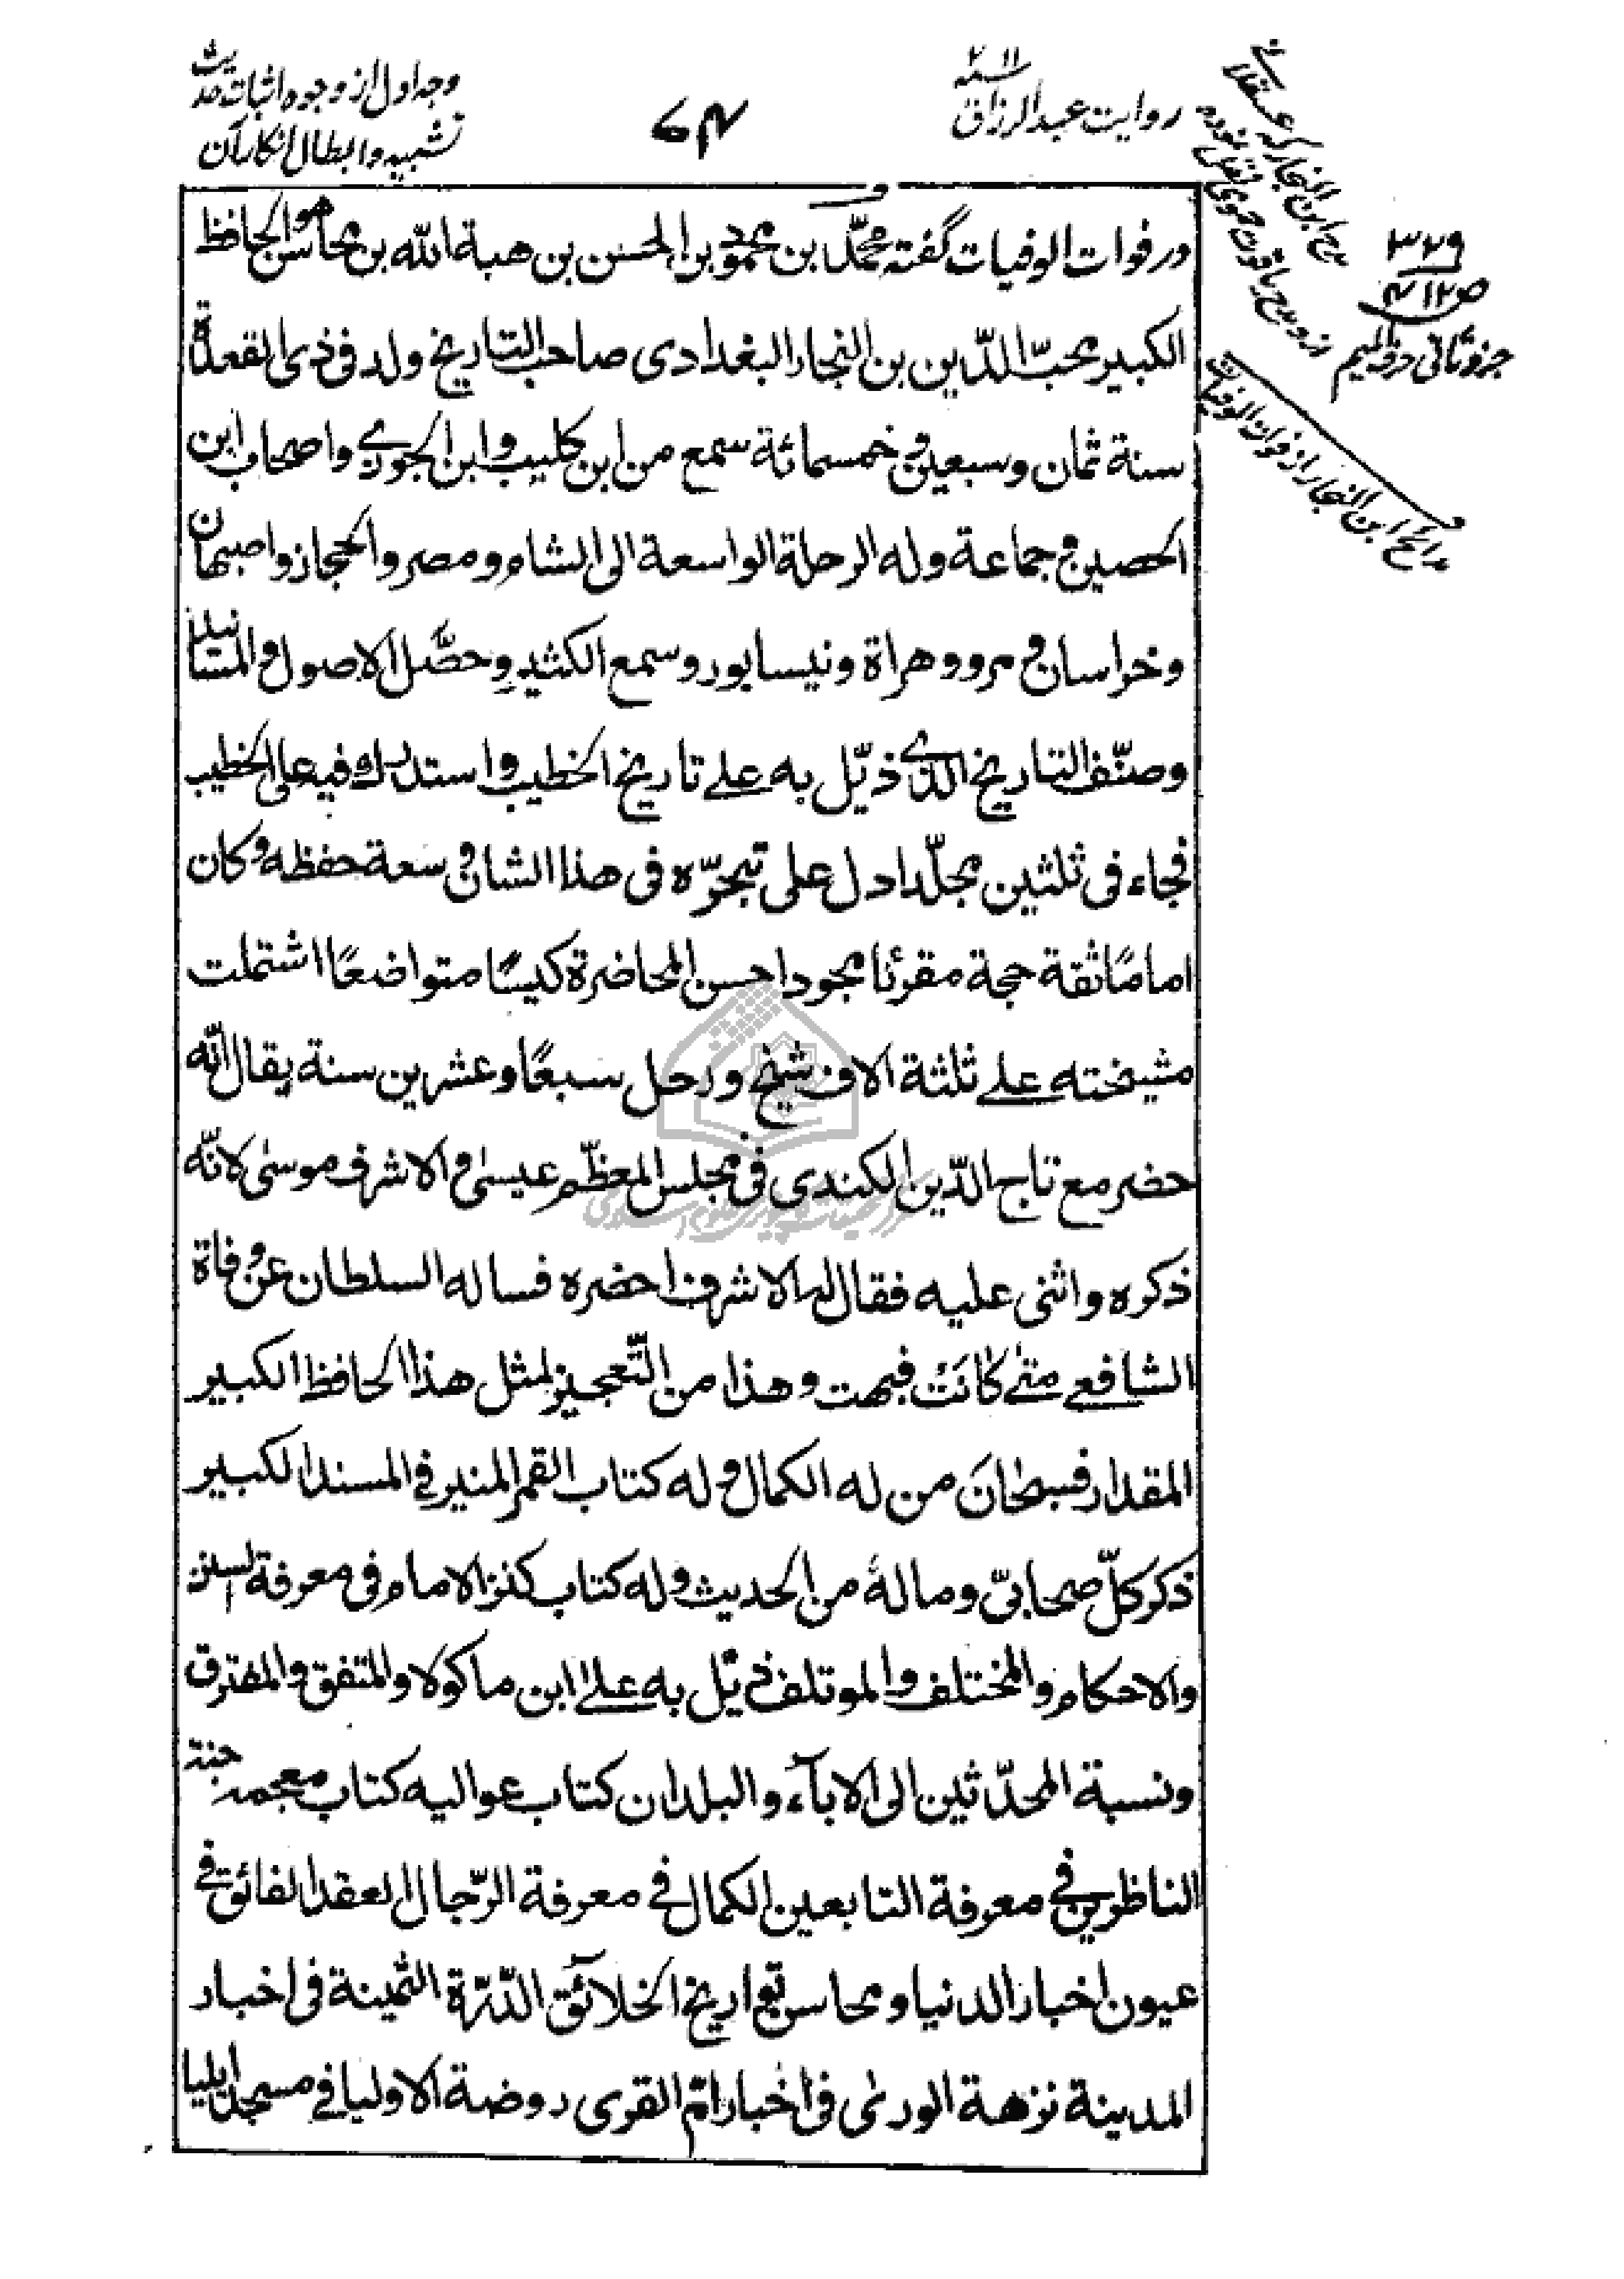 روایت عبدالرزاق
سنه ۲۱۱
۶۴
وجه اول از وجوه اثبات حدیث
تشبیه و ابطال انکار آن
مدح ابن النجار که عسقلانی
نقل نموده
از مدح یاقوت حموی
۳۲۹
ص ۴۱۲
جزو ثانی حرف المیم
مدائح ابن النجار از فوات الوفیات
و در فوات الوفیات گفته محمّد بن محمود بن الحسن بن هبة الله بن محاسن هو الحافظ
الکبیر محبّ الدّین بن النجار البغدادی صاحب التاریخ ولد فی ذی القعدة
سنة ثمان وسبعین و خمسمائة سمع من ابن کلیب و ابن الجوزی و اصحاب ابن
الحصین و جماعة وله الرحلة الواسعة الی الشام ومصر والحجاز واصبهان
وخراسان و مرو وهراة ونیسابور وسمع الکثیر وحصّل الاصول والمسانید
وصنّف التاریخ الذی ذیّل به علی تاریخ الخطیب و استدرك فیه علی الخطیب
فجاء فی ثلثین مجلّدا دل علی تبحّره فی هذا الشان و سعة حفظه و کان
امامًا ثقة حجة مقرئا مجودا حسن المحاضرة کیسًا متواضعًا اشتملت
مشیخته علی ثلثة الاف شیخ ورحل سبعًا وعشرین سنة یقال انّه
حضر مع تاج الدّین الکندی فی مجلس المعظّم عیسیٰ و الاشرف موسیٰ لانّه
ذکره واثنی علیه فقال له الاشرف احضره فساله السلطان عن وفاة
الشافعی متی کانَت فبهت وهذا من التّعجیز لمثل هذا الحافظ الکبیر
المقدار فسبحانَ من له الکمال و له کتاب القمر المنیر فی المسند الکبیر
ذکر کلّ صحابیّ وماله من الحدیث وله کتاب کنز الامام فی معرفة السنن
والاحکام والمختلف والموتلف ذیّل به علی ابن ماکولا والمتفق والمفترق
ونسبة المحدّثین الی الاباء والبلدان کتاب عوالیه کتاب معجمه جنة
الناظرین فی معرفة التابعین الکمال فی معرفة الرّجال العقد الفائق فی
عیون اخبار الدنیا ومحاسن تواریخ الخلائق الدّرّة الثمینة فی اخبار
المدینة نزهة الوریٰ فی اخبار امّ القری روضة الاولیا فی مسجد ایلیا